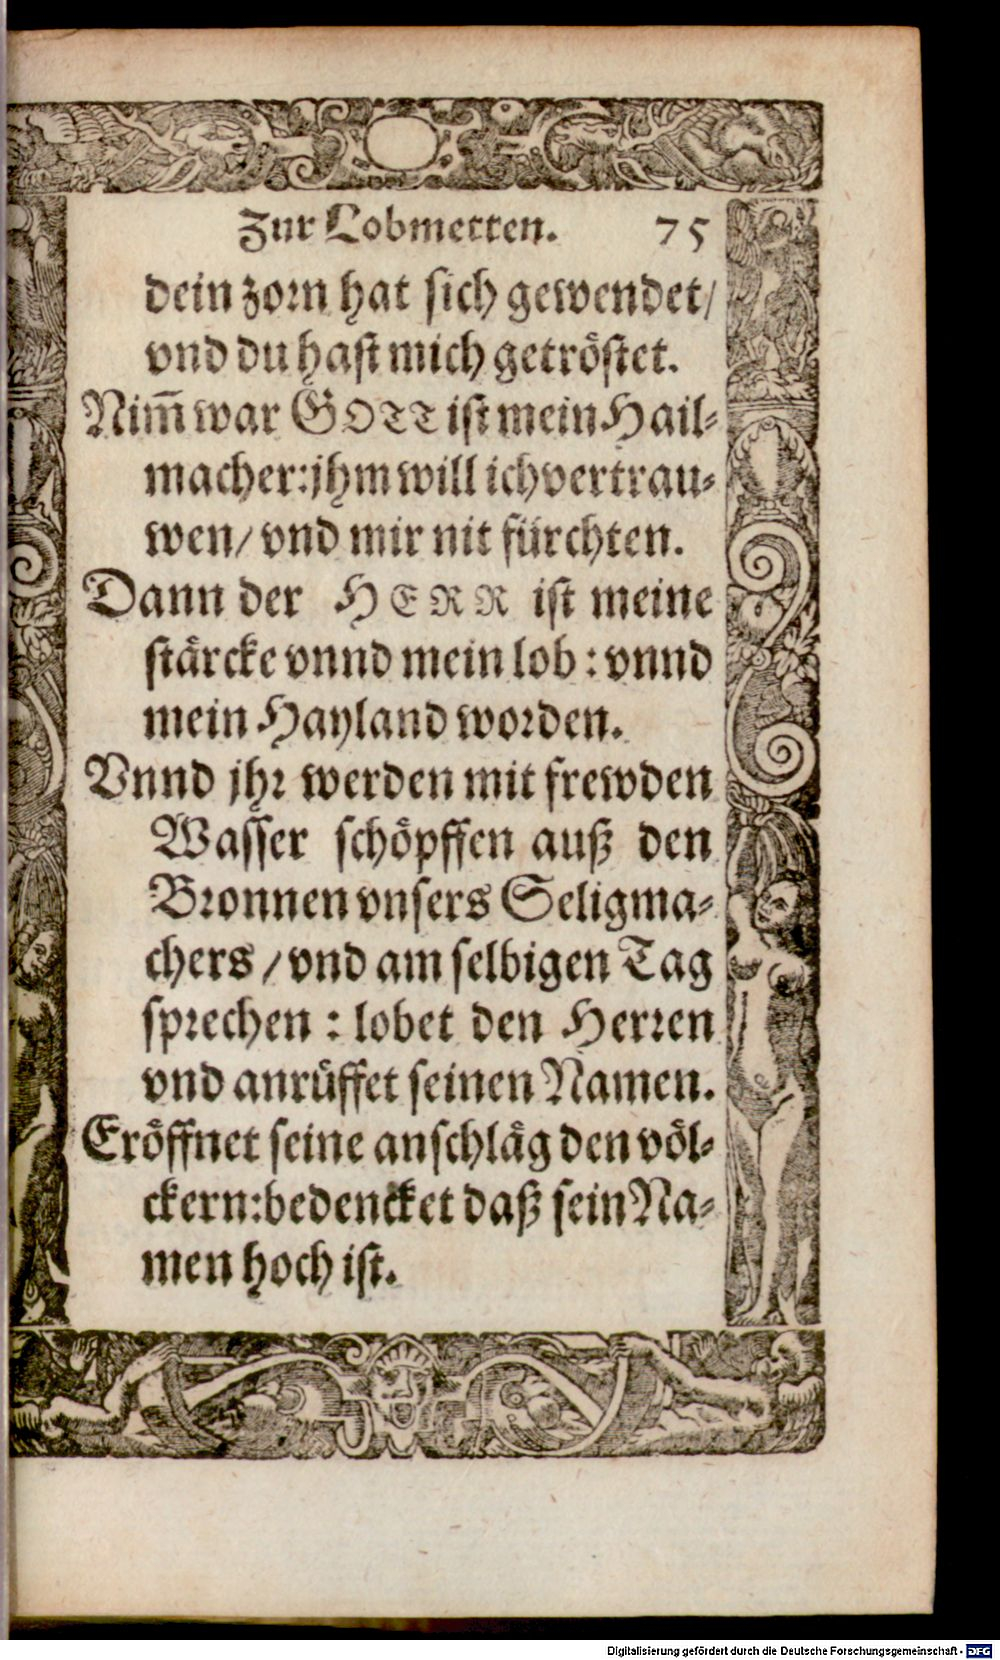 Zur Lobmetten. 75
dein zorn hat sich gewendet/
vnd du hast mich getröstet.
Nim̃ war GOTT ist mein Hail-
macher: jhm will ich vertrau-
wen/ vnd mir nit fürchten.
Dann der HERR ist meine
stärcke vnnd mein lob: vnnd
mein Hayland worden.
Vnnd jhr werden mit frewden
Wasser schöpffen auß den
Bronnen vnsers Seligma-
chers / vnd am selbigen Tag
sprechen: lobet den Herren
vnd anrüffet seinen Namen.
Eröffnet seine anschläg den völ-
ckern: bedencket daß sein Na-
men hoch ist.
Digitalisierung gefördert durch die Deutsche Forschungsgemeinschaft - DFG